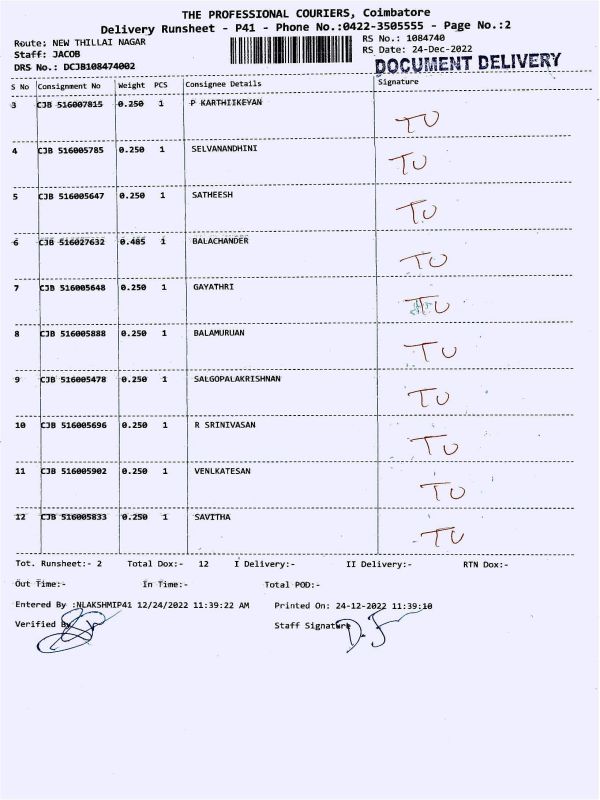 THE PROFESSIONAL COURIERS, Coimbatore
Delivery Runsheet - P41 - Phone No.:0422-3505555 - Page No.:2
Route: NEW THILLAI NAGAR RS No.: 1084740
Staff: JACOB RS Date: 24-Dec-2022
DRS No.: DCJB108474002 DOCUMENT DELIVERY
S No Consignment No Weight PCS Consignee Details Signature
3 CJB 516007815 0.250 1 P KARTHIIKEYAN TU
4 CJB 516005785 0.250 1 SELVANANDHINI TU
5 CJB 516005647 0.250 1 SATHEESH TU
6 CJB 516027632 0.485 1 BALACHANDER TU
7 CJB 516005648 0.250 1 GAYATHRI TU
8 CJB 516005888 0.250 1 BALAMURUAN TU
9 CJB 516005478 0.250 1 SALGOPALAKRISHNAN TU
10 CJB 516005696 0.250 1 R SRINIVASAN TU
11 CJB 516005902 0.250 1 VENLKATESAN TU
12 CJB 516005833 0.250 1 SAVITHA TU
Tot. Runsheet:- 2 Total Dox:- 12 I Delivery:- II Delivery:- RTN Dox:-
Out Time:- In Time:- Total POD:-
Entered By :NLAKSHMIP41 12/24/2022 11:39:22 AM Printed On: 24-12-2022 11:39:10
Verified By Staff Signature